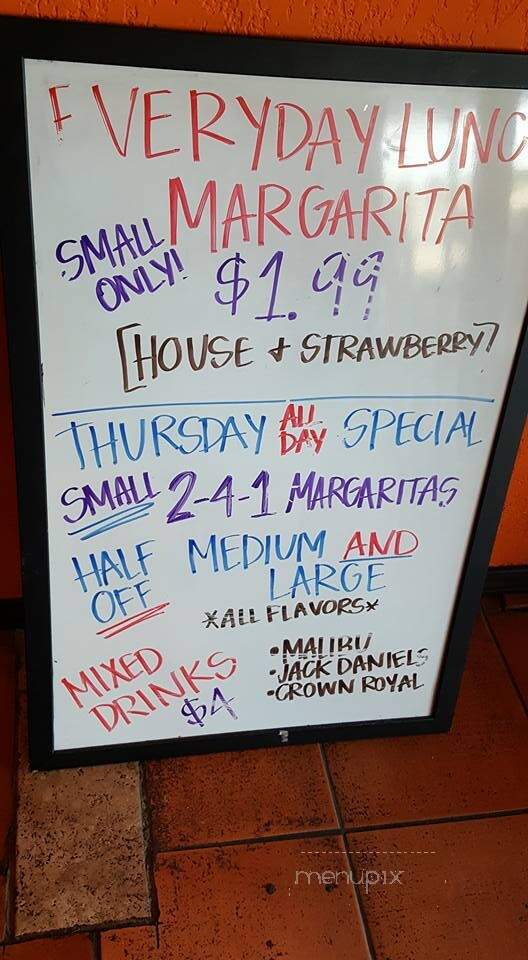 EVERYDAY LUNC
MARGARITA
SMALL
ONLY!
$1.99
[HOUSE & STRAWBERRY]
THURSDAY ALL DAY SPECIAL
SMALL 2-4-1 MARGARITAS
HALF OFF
MEDIUM AND
LARGE
*ALL FLAVORS*
MIXED
DRINKS
$4
•MALIBU
•JACK DANIELS
•CROWN ROYAL
menupix